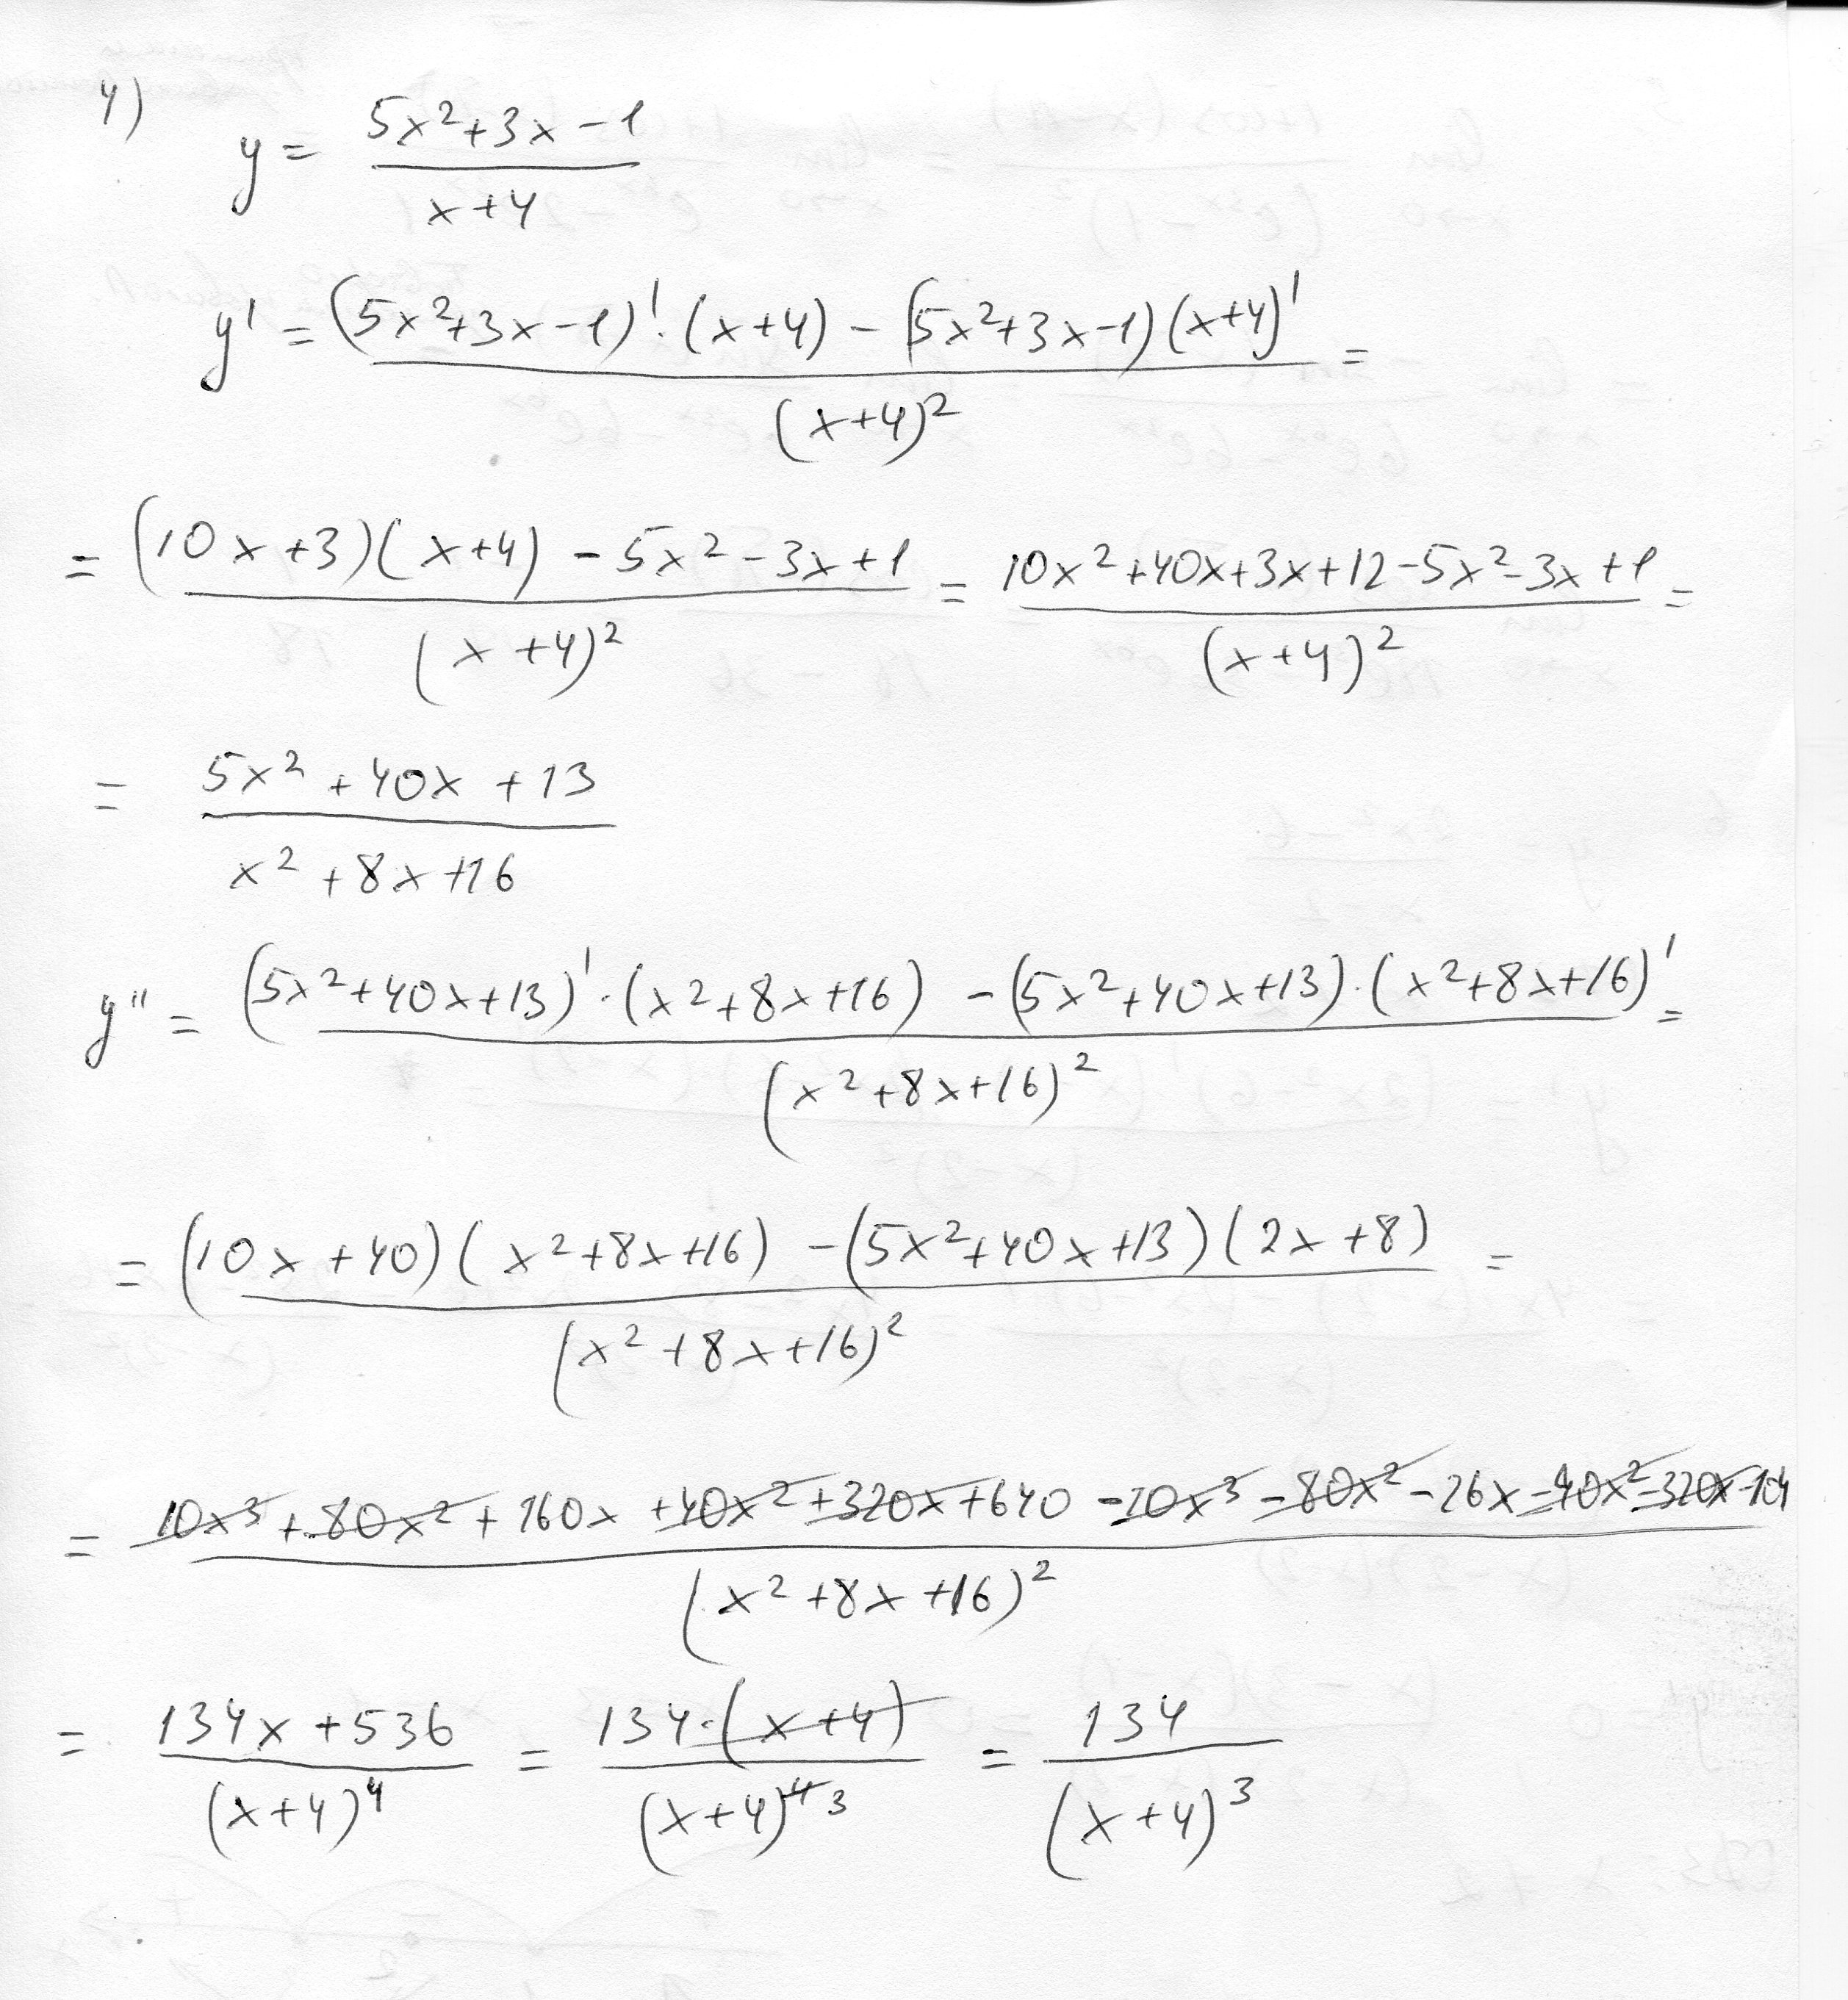 4)
y = (5x²+3x-1)/(x+4)
y' = ((5x²+3x-1)'·(x+4) - (5x²+3x-1)(x+4)')/(x+4)² =
= ((10x+3)(x+4) - 5x² - 3x+1)/(x+4)² = (10x²+40x+3x+12-5x²-3x+1)/(x+4)² =
= (5x²+40x+13)/(x²+8x+16)
y'' = ((5x²+40x+13)'·(x²+8x+16) - (5x²+40x+13)·(x²+8x+16)')/(x²+8x+16)² =
= ((10x+40)(x²+8x+16) - (5x²+40x+13)(2x+8))/(x²+8x+16)² =
= (10x³+80x²+160x+40x²+320x+640-10x³-80x²-26x-40x²-320x-104)/(x²+8x+16)²
= (134x+536)/(x+4)⁴ = (134·(x+4))/(x+4)⁴ ³ = 134/(x+4)³